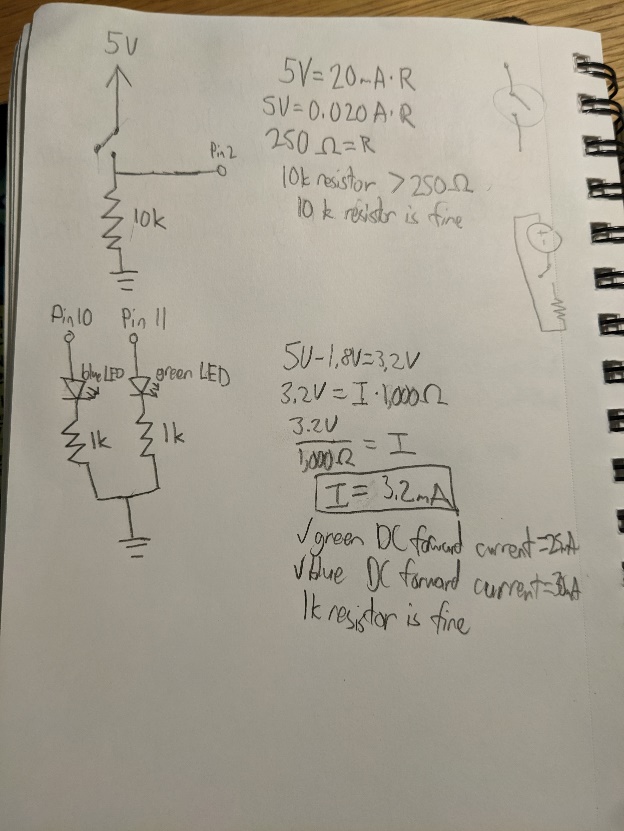 5V
Pin 2
10k
5V=20mA·R
5V=0.020A·R
250Ω=R
10k resistor >250Ω
10 k resistor is fine
+
-
Pin 10 Pin 11
blue LED green LED
1k 1k
5V-1.8V=3.2V
3.2V=I·1,000Ω
3.2V
1,000Ω
= I
I= 3.2mA
√green DC forward current=25mA
√blue DC forward current=30mA
1k resistor is fine